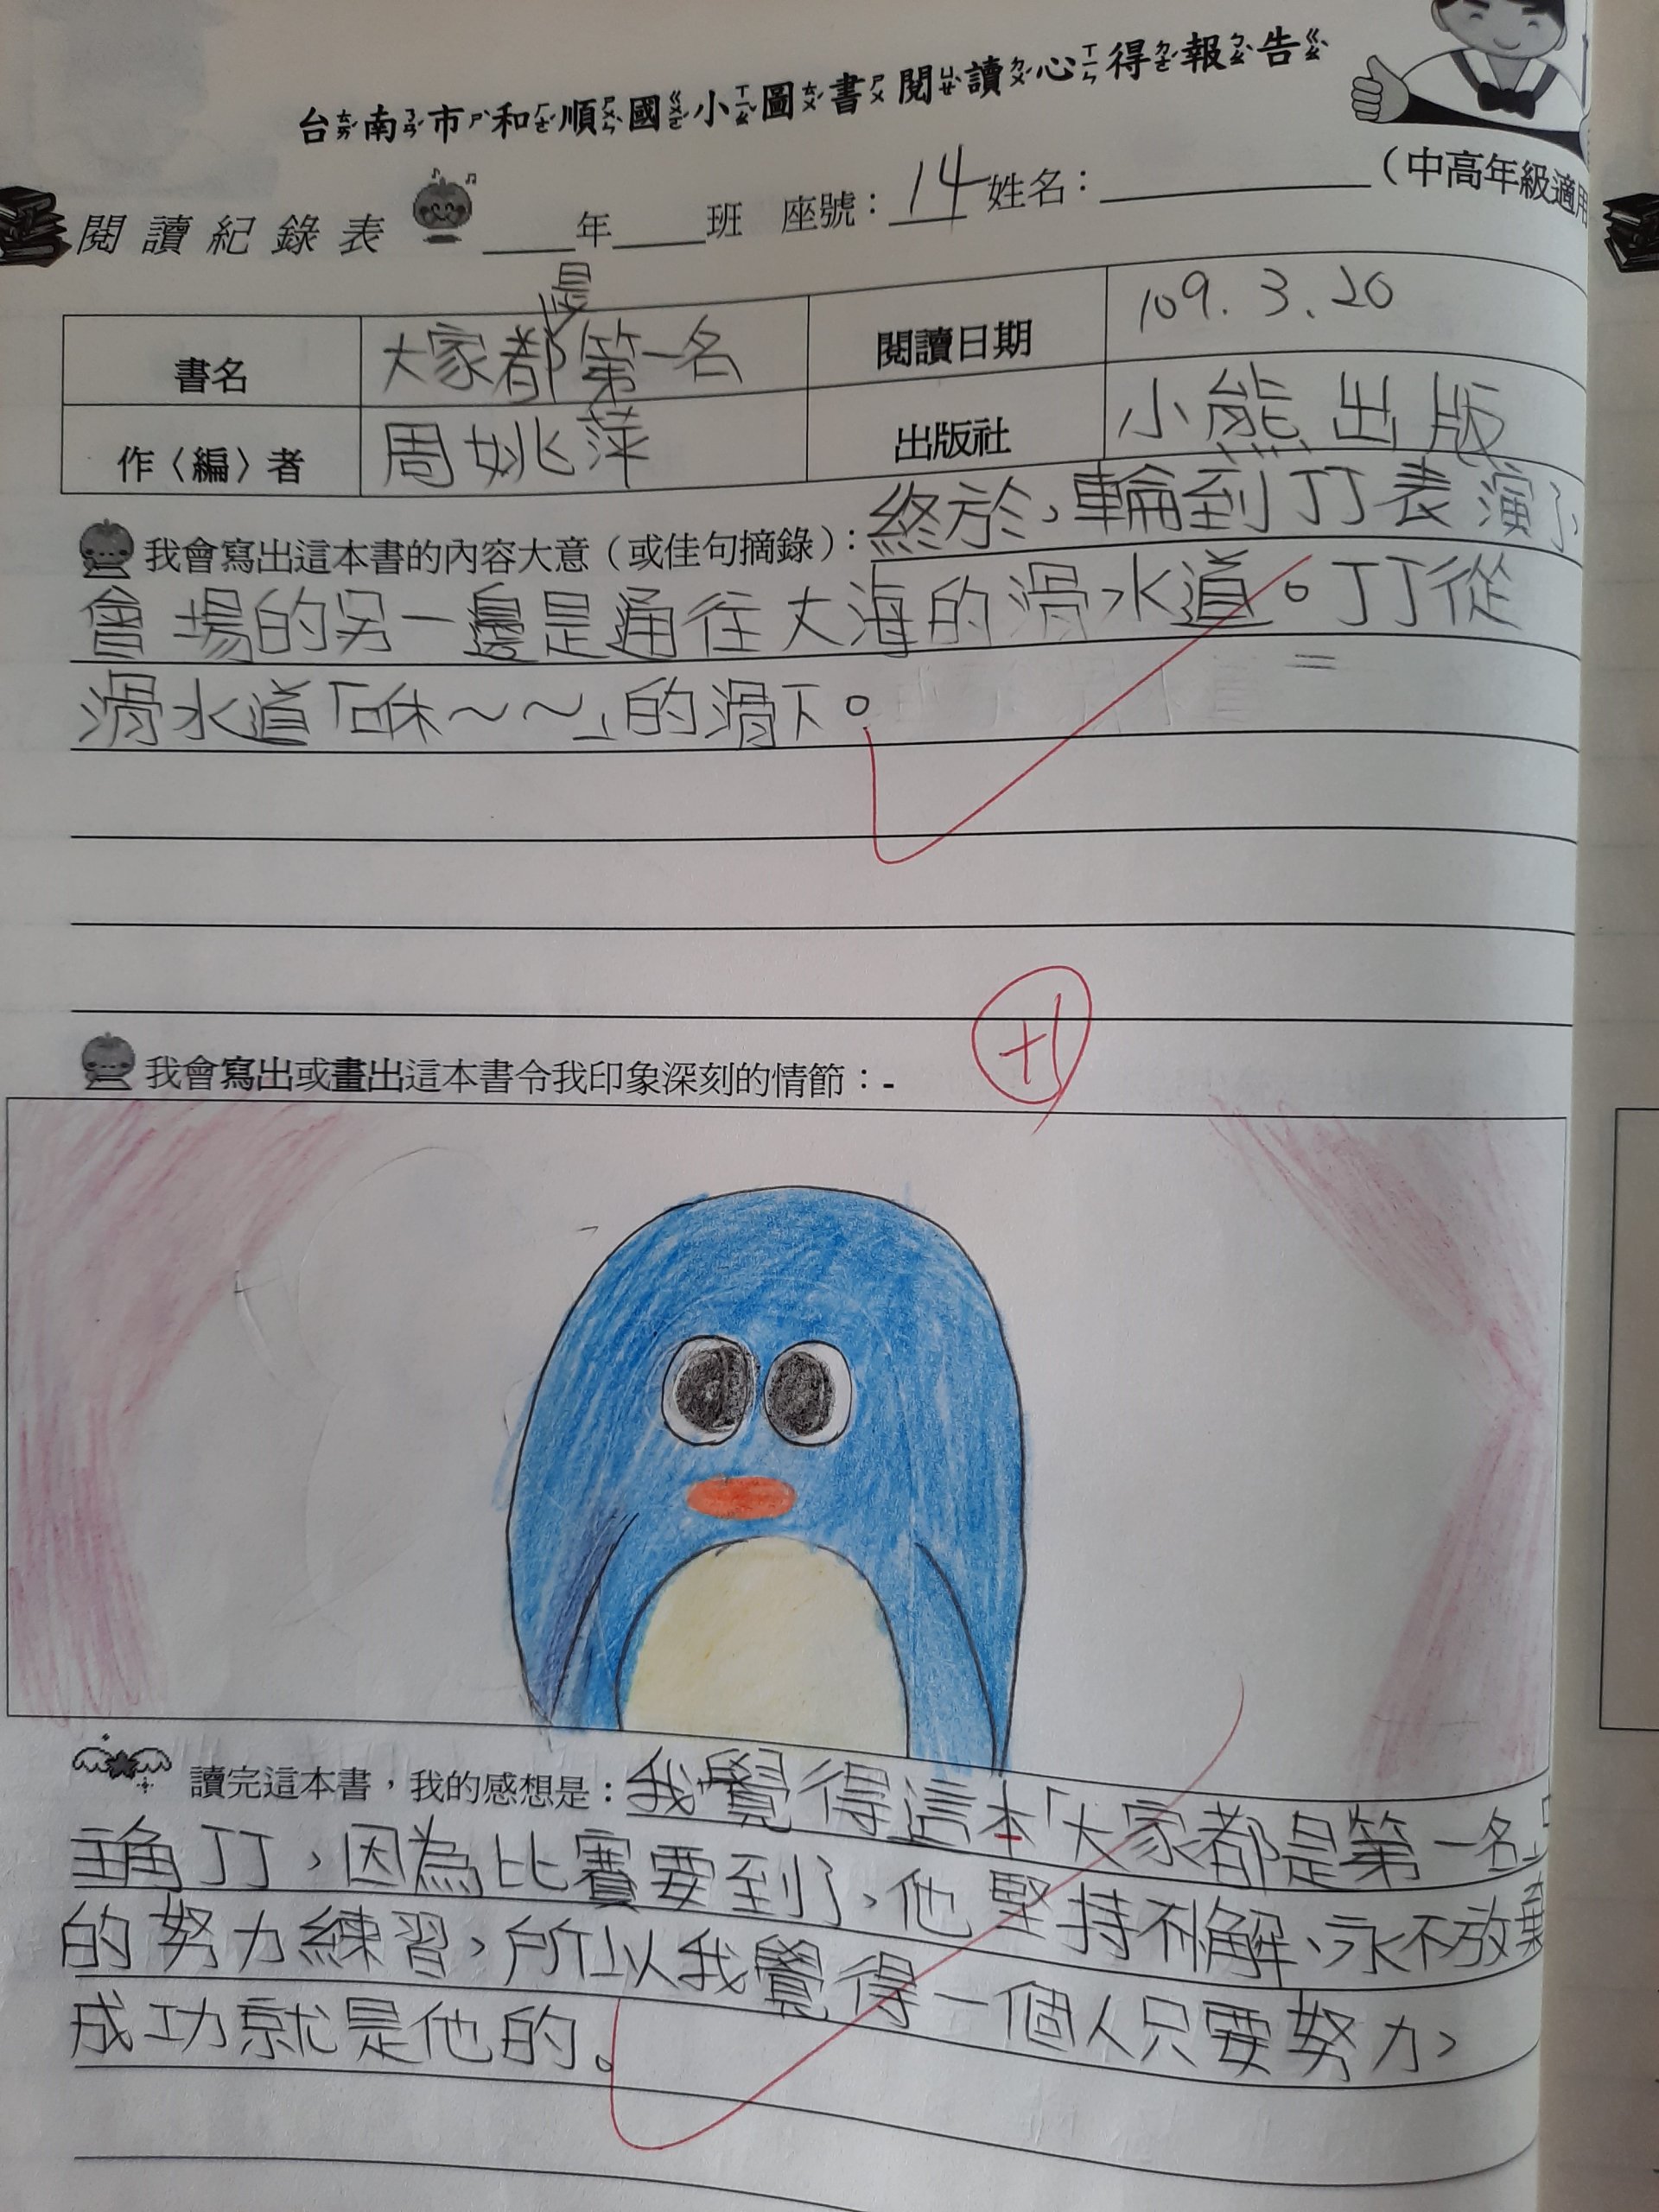 台南市和順國小圖書閱讀心得報告
閱讀紀錄表 ____年____班 座號：14 姓名：________（中高年級適用
書名 大家都是第一名 閱讀日期 109.3.20
作〈編〉者 周姚萍 出版社 小熊出版
我會寫出這本書的內容大意（或佳句摘錄）：終於，輪到丁丁表演了，
會場的另一邊是通往大海的滑水道。丁丁從
滑水道「咻～～」的滑下。
+1
我會寫出或畫出這本書令我印象深刻的情節：-
讀完這本書，我的感想是：我覺得這本「大家都是第一名」
主角丁丁，因為比賽要到了，他堅持不懈、永不放棄
的努力練習，所以我覺得一個人只要努力，
成功就是他的。